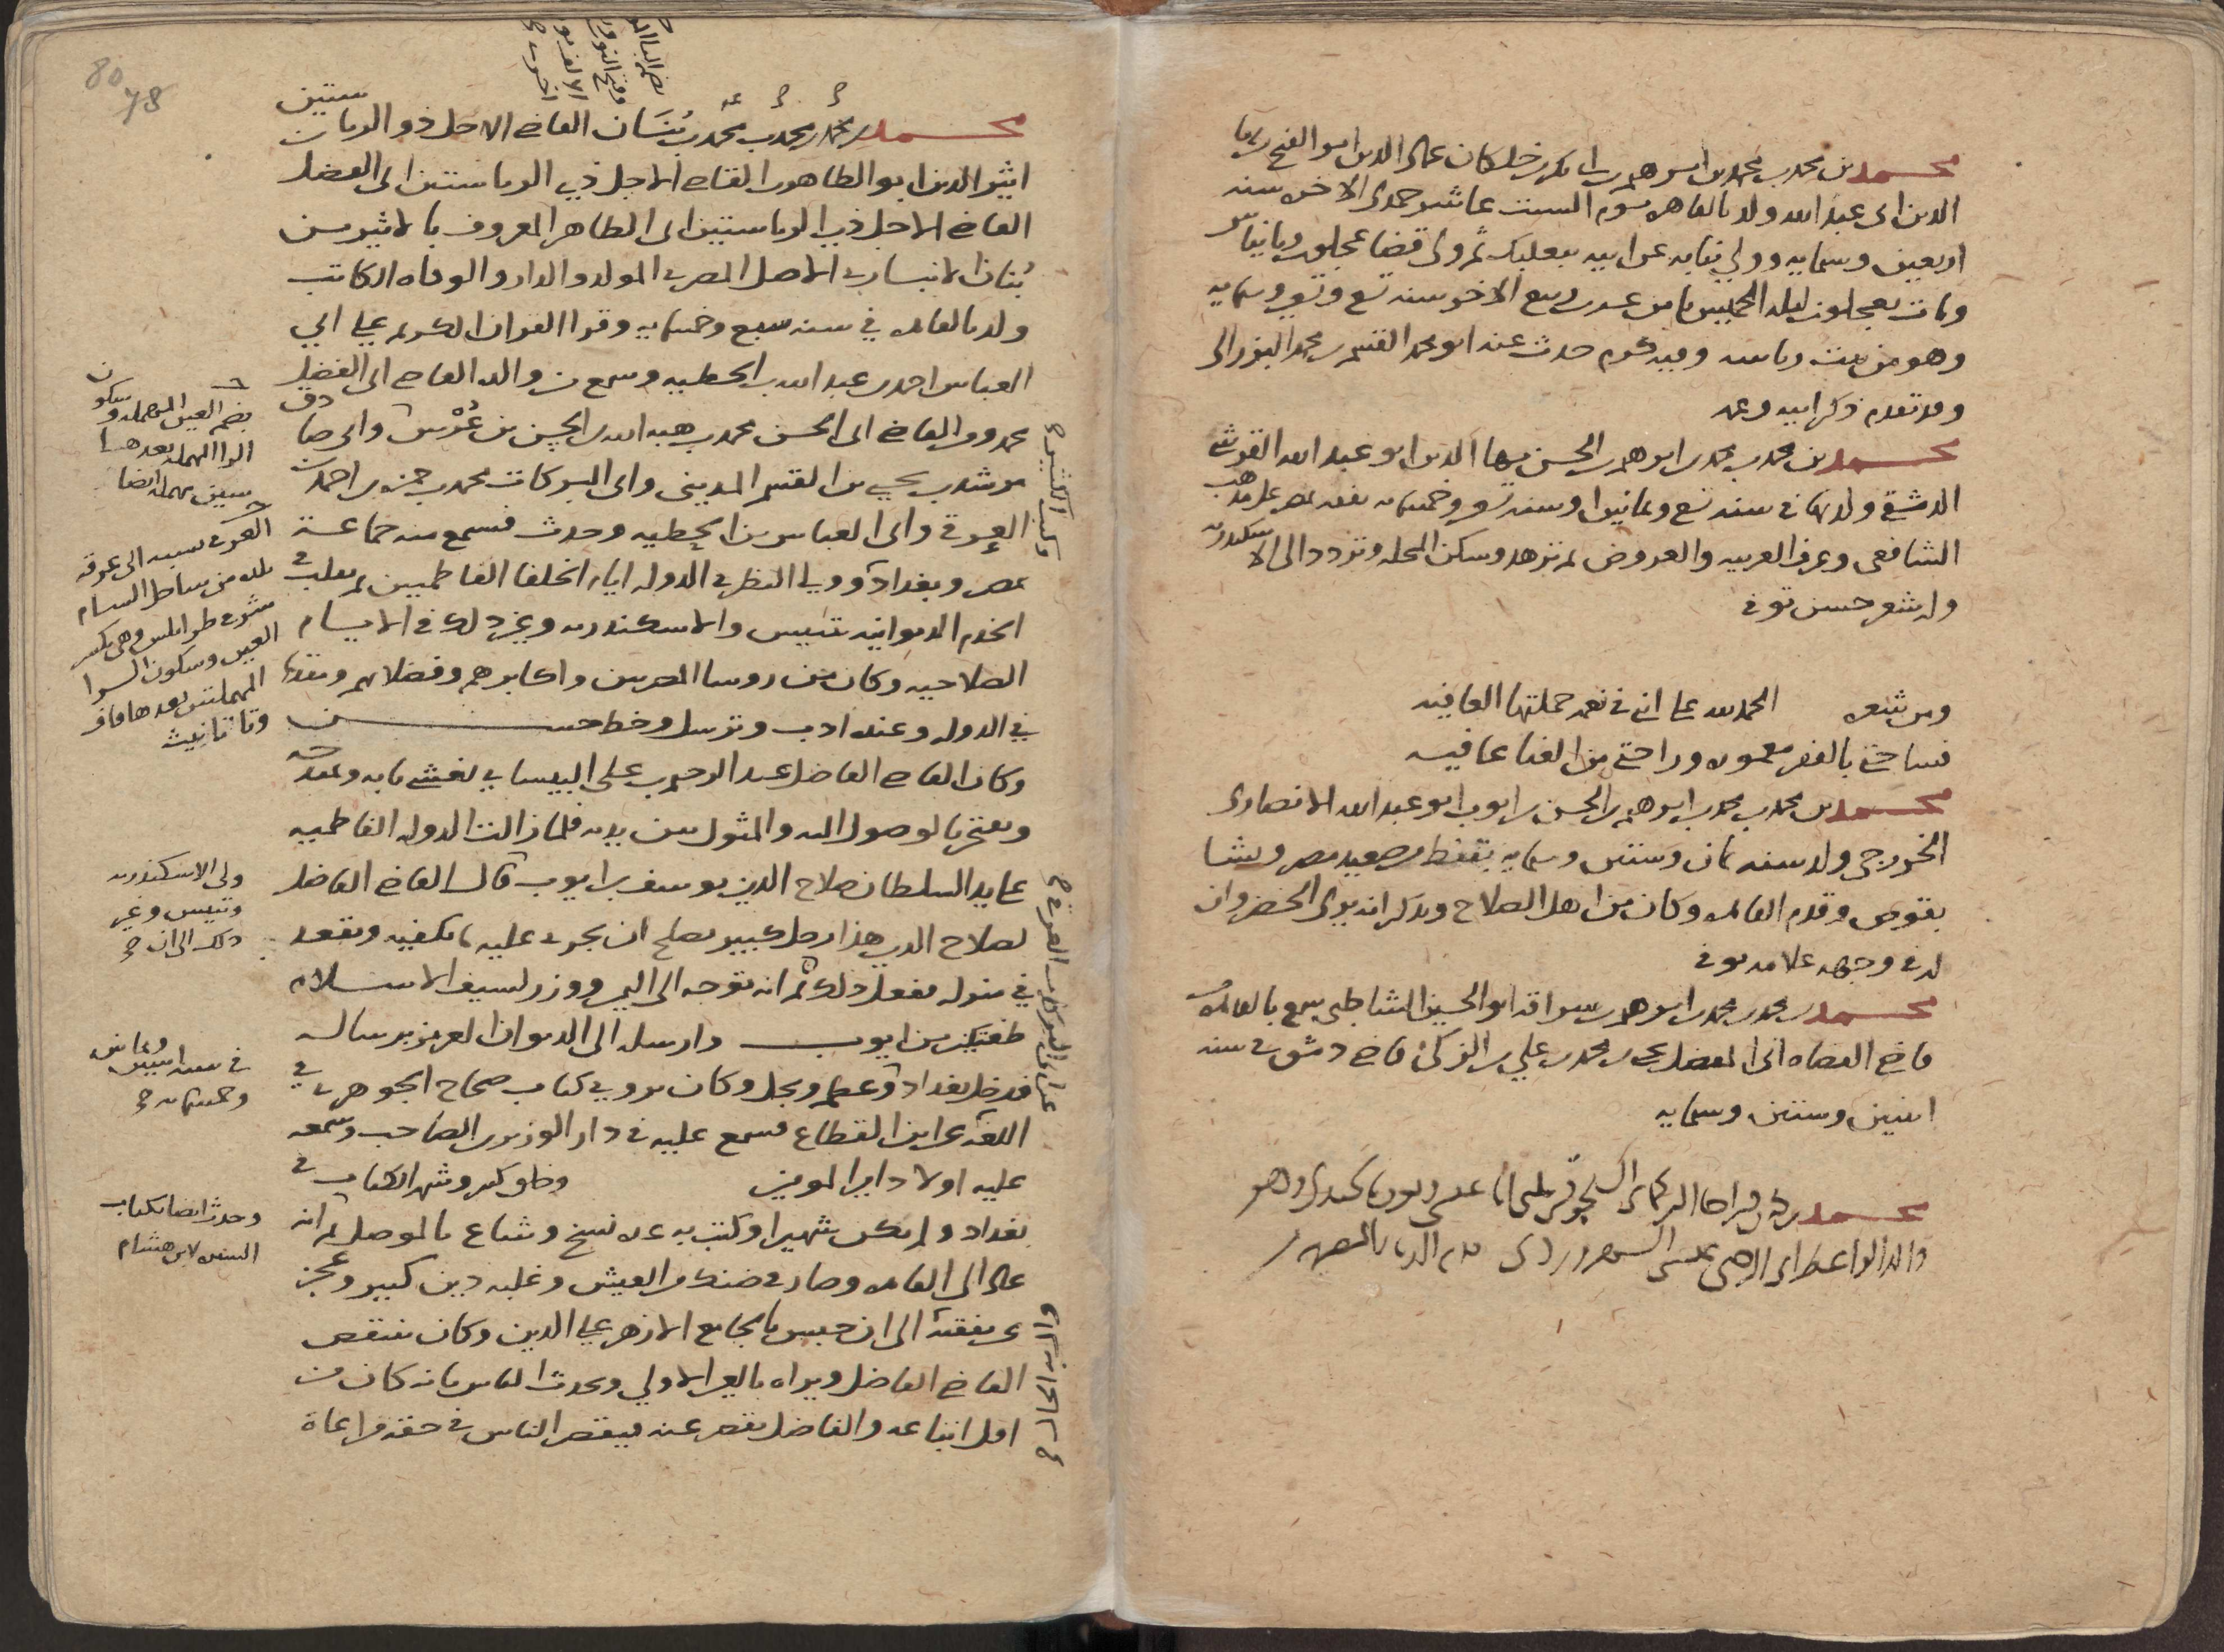 محمد بن محمد بن محمد بن ابرهيم بن ابى بكر بن خلكان عماد الدين ابو الفتح بن بها
الدين ابى عبد الله ولد بالقاهره يوم السبت عاشر جمدى الاخره سنه
اربعين وستمايه وولي نيابه عن ابيه ببعلبك ثم ولى قضا عجلون وبانياس
ومات بعجلون ليله الخميس ثامن عشر ربيع الاخر سنه تسع وتسعين وستمايه
وهو من بيت رياسه وفيه كرم حدث عنه ابو محمد القسم بن محمد البرزالى
وقد تقدم ذكر ابيه وعمه
محمد بن محمد بن محمد بن ابرهيم بن الحسن بها الدين ابو عبد الله القرشي
الدمشقي ولد بها في سنه تسع وثمانين او سنه تسعين وخمسمايه تفقه بمصر على مذهب
الشافعى وعرف العربيه والعروض ثم تزهد وسكن المحله وتردد الى الاسكندريه
وله شعر حسن توفى
ومن شعره الحمد لله على اننى في نعمه جملتها العافيه
فساحتي بالفقر معموره وراحتي من الغنا عافيه
محمد بن محمد بن محمد بن ابرهيم بن الحسن بن ايوب ابو عبد الله الانصارى
الخزرجى ولد سنه ثمان وستين وستمايه بقفط من صعيد مصر ونشا
بقوص وقدم القاهره وكان من اهل الصلاح ويذكر انه يرى الخضر وان
له في وجهه علامه توفى
محمد بن محمد بن محمد بن ابرهيم بن سراقه ابو الحسين الشاطبى سمع بالقاهره من
قاضي القضاه ابى المفضل يحيى بن محمد بن علي بن الزكى قاضى دمشق في سنه
اثنين وستين وستمايه
محمد
ستين
محمد بن محمد بن محمد بن محمد بن بُنَان القاضى الاجل ذو الرياستين
اثير الدين ابو الطاهر بن القاضى الاجل ذي الرياستين ابى الفضل
القاضي الاجل ذي الرياستين ابى الطاهر المعروف بالاثير بن
بُنان الانباري الاصل المصرى المولد والدار والوفاه الكاتب
ولد بالقاهره في سنه سبع وخمسمايه وقرا القران الكريم على ابي
العباس احمد بن عبد الله بن الحطيه وسمع من والده القاضى ابى الفضل
محمد ومن القاضى ابى الحسن محمد بن هبه الله بن الحسن بن عُرْس وابى صادق
مرشد بن يحيى بن القسم المدينى وابى البركات محمد بن حمزه بن احمد بن
العِرقي وابى العباس بن الحطيه وحدث فسمع منه جماعة
بمصر وبغداد وولي النظر في الدوله ايام الخلفا الفاطميين ثم تقلب في
الخدم الديوانيه بتنيس والاسكندريه وغير ذلك في الايام
الصلاحيه وكان من روسا المصريين واكابرهم وفضلايهم
في الدوله وعنده ادب وترسل وخط حسن
وكان القاضى الفاضل عبد الرحيم بن على البيساني يغشى بابه ويمتدحه
ويفتخر بالوصول اليه والمثول بين يديه فلما زالت الدوله الفاطميه
على يد السلطان صلاح الدين يوسف بن ايوب قال القاضى الفاضل
لصلاح الدين هذا رجل كبير يصلح ان يجرى عليه ما يكفيه ويقعد
في منزله ففعل ذلك ثم انه توجه الى اليمن ووزر لسيف الاسلام
طغتكين بن ايوب وارسله الى الديوان العزيز برساله
فدخل بغداد وعظم وبجل وكان يروي كتاب صحاح الجوهرى في
اللغه عن ابن القطاع فسمع عليه في دار الوزير بن الصاحب وسمعه
عليه اولاد ابن الوزير وخلق كثير وشهر الكتاب في
بغداد ولم يكن شهيرا وكتب به عده نسخ وشاع بالموصل ثم انه
عاد الى القاهره وصار في ضنك من العيش وغلبه دين كبير وعجز
عن نفقته الى ان حبس بالجامع الازهر على الدين وكان ينتقص
القاضى الفاضل ويراه بالعين الاولى ويحدث الناس بانه كان من
اقل اتباعه والفاضل يقصر عنه فيقصر الناس في حقه مراعاة
بضم العين المهمله وسكون
الرا المهمله بعدها
سين مهمله ايضا
العرقى نسبه الى عرقه
بلده من ساحل الشام
شرقى طرابلس وهى بكسر
العين وسكون الرا
المهملتين بعدها قاف
وتا تانيث
ولى الاسكندريه
وتنيس وغير
ذلك الى ان
وخمسمايه
وحدث ايضا بكتاب
السيره لابن هشام